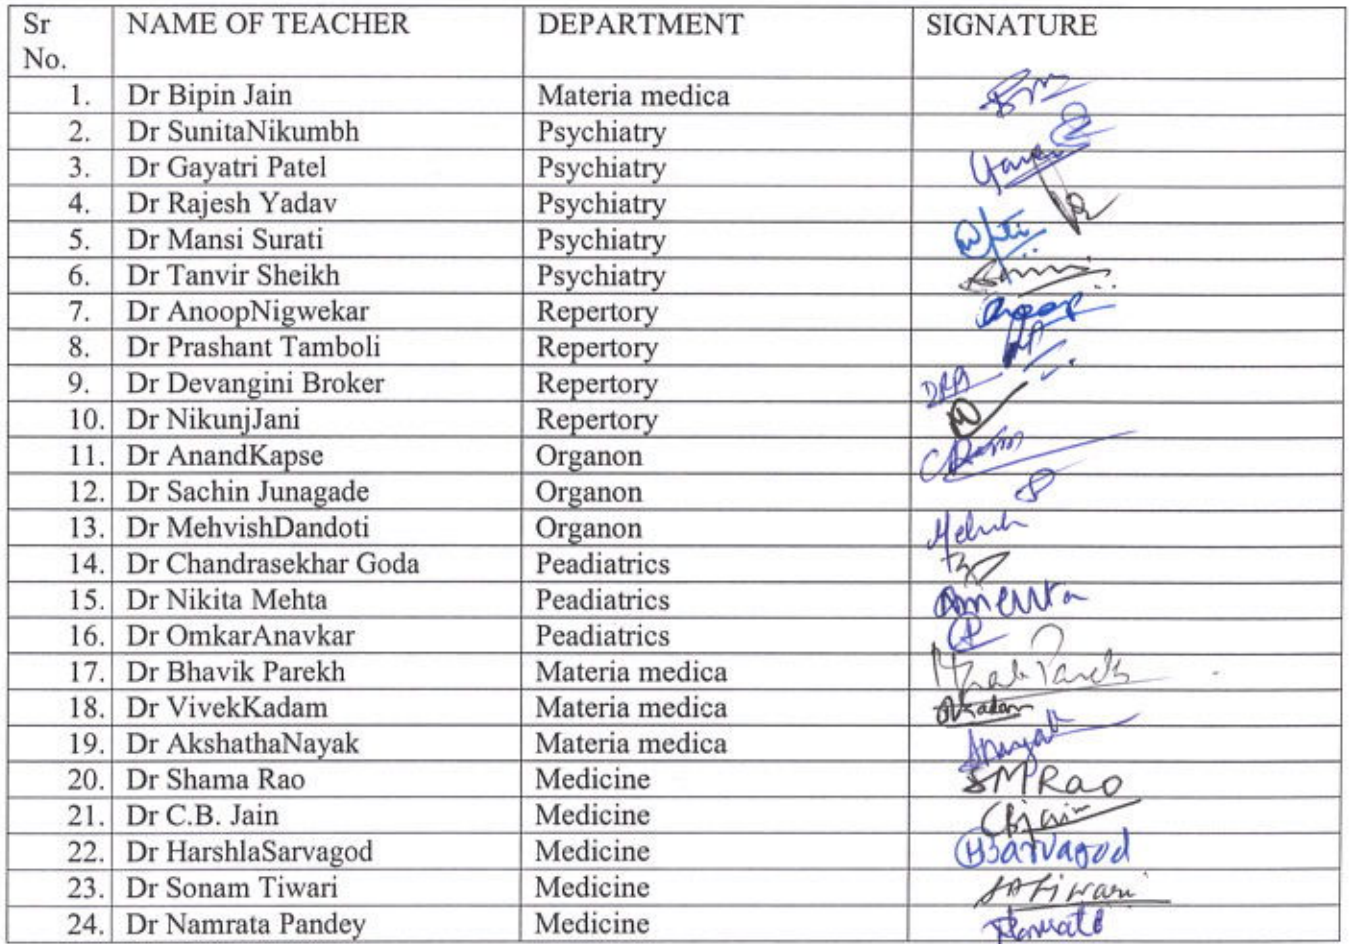 Sr No. NAME OF TEACHER DEPARTMENT SIGNATURE
1. Dr Bipin Jain Materia medica
2. Dr SunitaNikumbh Psychiatry
3. Dr Gayatri Patel Psychiatry
4. Dr Rajesh Yadav Psychiatry
5. Dr Mansi Surati Psychiatry
6. Dr Tanvir Sheikh Psychiatry
7. Dr AnoopNigwekar Repertory Anoop
8. Dr Prashant Tamboli Repertory
9. Dr Devangini Broker Repertory
10. Dr NikunjJani Repertory
11. Dr AnandKapse Organon
12. Dr Sachin Junagade Organon
13. Dr MehvishDandoti Organon
14. Dr Chandrasekhar Goda Peadiatrics
15. Dr Nikita Mehta Peadiatrics
16. Dr OmkarAnavkar Peadiatrics
17. Dr Bhavik Parekh Materia medica
18. Dr VivekKadam Materia medica
19. Dr AkshathaNayak Materia medica
20. Dr Shama Rao Medicine SMRao
21. Dr C.B. Jain Medicine CBjain
22. Dr HarshlaSarvagod Medicine HSarvagod
23. Dr Sonam Tiwari Medicine
24. Dr Namrata Pandey Medicine